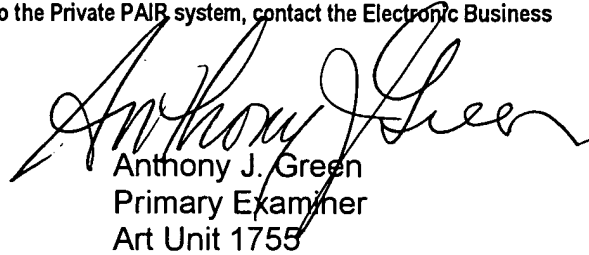 o the Private PAIR system, contact the Electronic Business
Anthony J Green
Anthony J. Green
Primary Examiner
Art Unit 1755